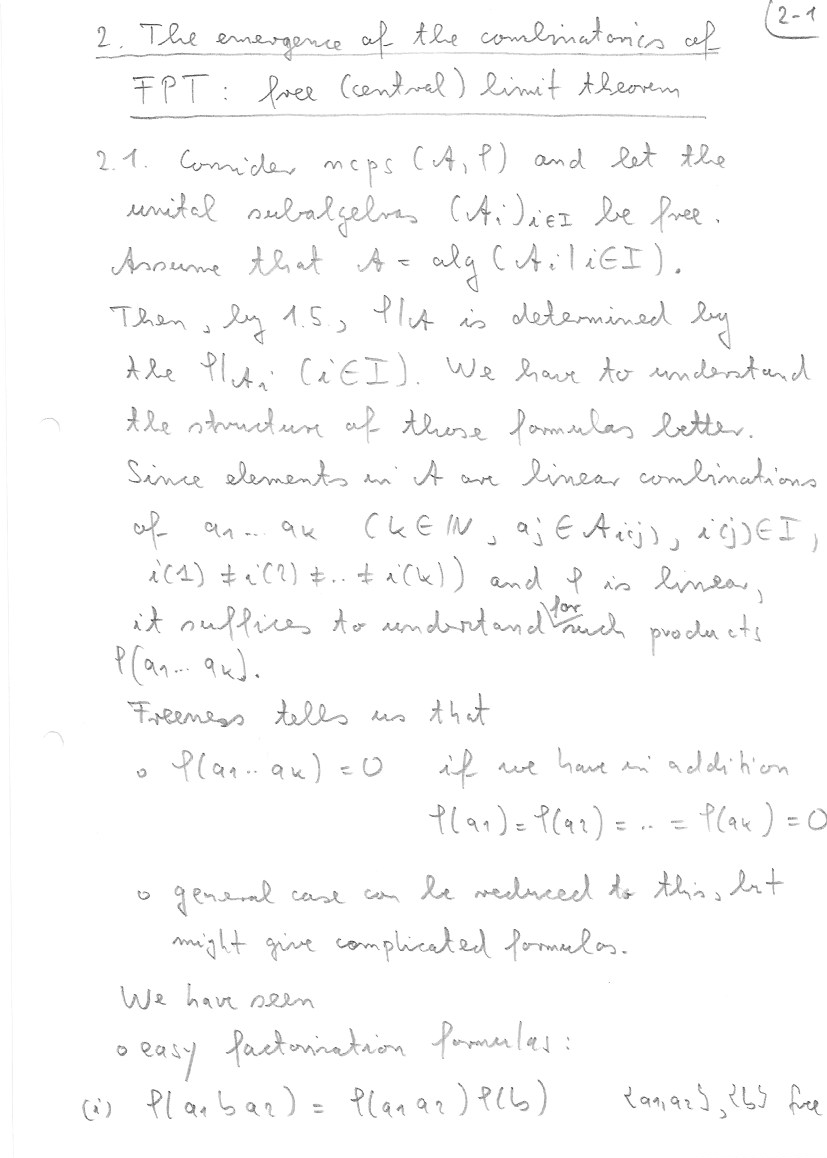 2-1
2. The emergence of the combinatorics of
FPT: free (central) limit theorem
2.1. Consider ncps (A, φ) and let the
unital subalgebras (Ai)i∈I be free.
Assume that A = alg (Ai | i∈I).
Then, by 1.5., φ|A is determined by
the φ|Ai (i∈I). We have to understand
the structure of these formulas better.
Since elements in A are linear combinations
of a1 ... ak (k∈ℕ, aj ∈ Ai(j), i(j)∈I,
i(1) ≠ i(2) ≠ .. ≠ i(k)) and φ is linear,
it suffices to understand for such products
φ(a1 ... ak).
Freeness tells us that
o φ(a1 .. ak) = 0 if we have in addition
φ(a1) = φ(a2) = .. = φ(ak) = 0
o general case can be reduced to this, but
might give complicated formulas.
We have seen
o easy factorization formulas:
(i) φ(a1 b a2) = φ(a1 a2) φ(b) {a1,a2}, {b} free